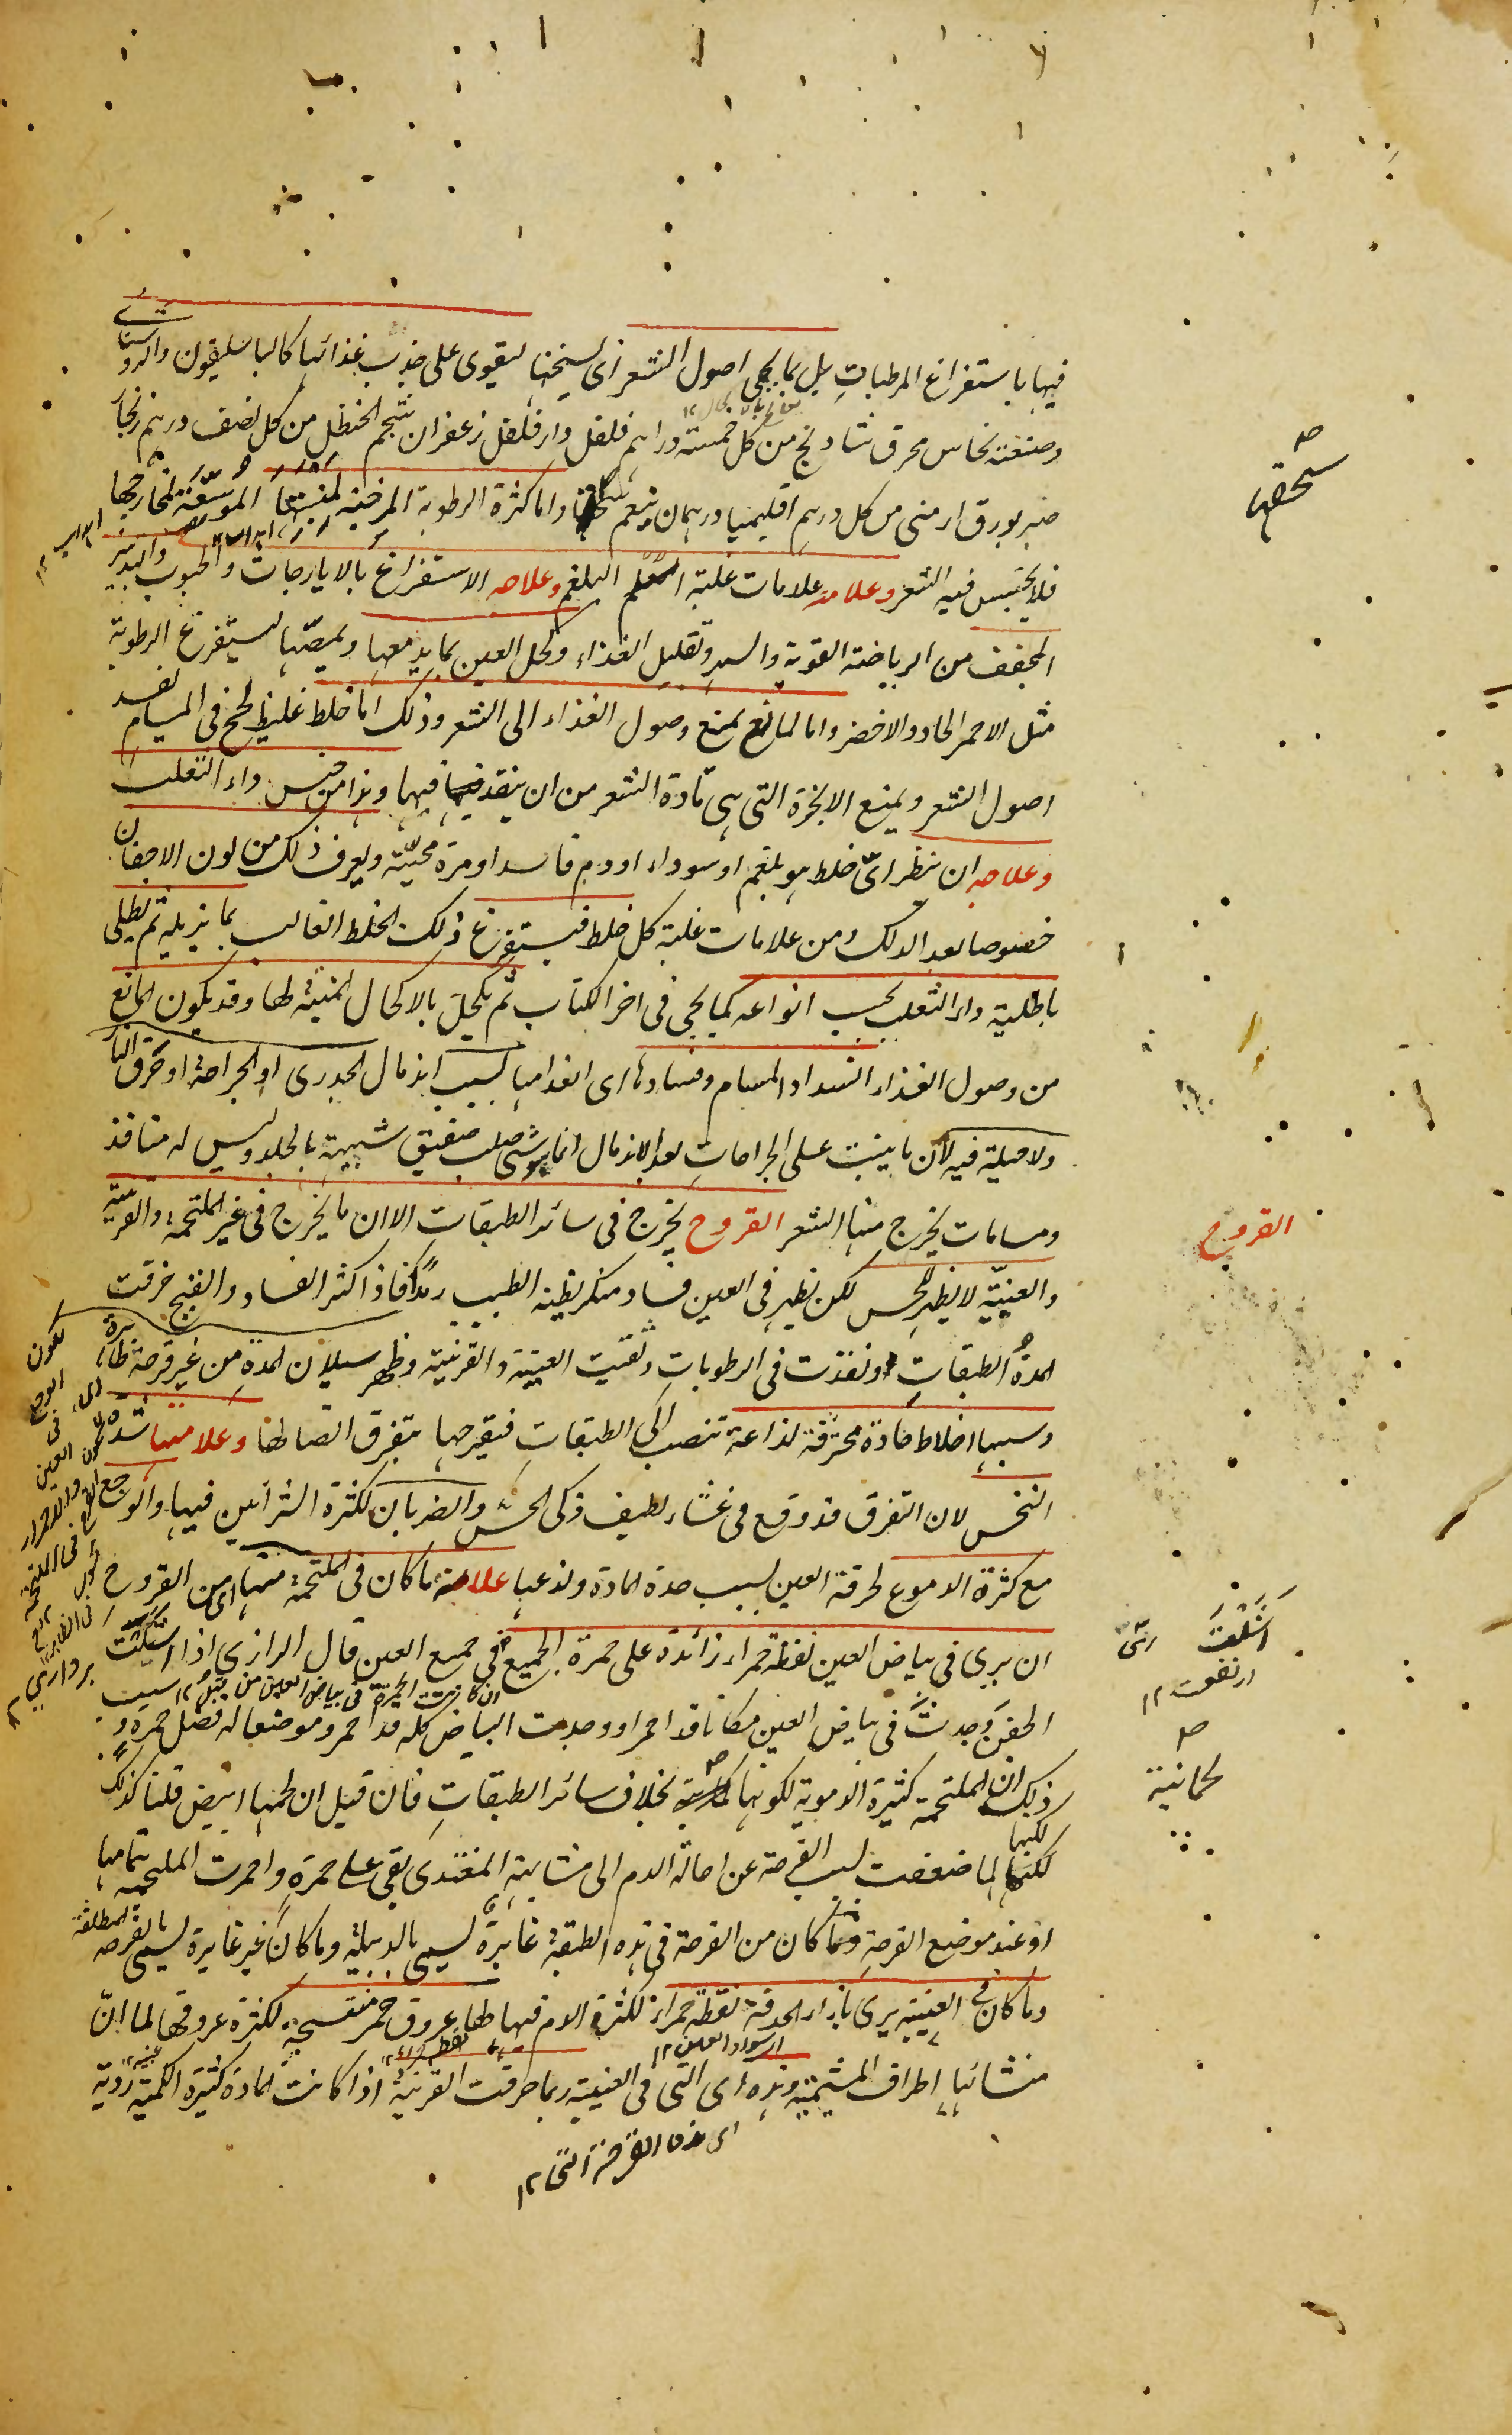 فيها باستفراغ المرطبات بل بما يحمى اصول الشعر اى يسخنها ليقوى على جذب غذائها كالباسليقون والروشنايا
وصنعته نحاس محرق شادنج من كل خمسة دراهم فلفل دار فلفل زعفران شحم الحنظل من كل نصف درهم زنجار
صبر بورق ارمنى من كل درهم اقليميا درهمان ينعم واما كثرة الرطوبة المرخية لمنبتها الموسعة لمخارجها
فلا يحتبس فيه الشعر وعلامته علامات غلبة البلغم وعلاجه الاستفراغ بالايارجات والحبوب والتدبير
المجفف من الرياضة القوية والسهر وتقليل الغذاء وكحل العين بما يدمعها ويمصها ليستفرغ الرطوبة
مثل الاحمر الحاد والاخضر واما لمانع يمنع وصول الغذاء الى الشعر وذلك اما خلط غليظ لحج فى المسام يفسد
اصول الشعر ويمنع الابخرة التى هى مادة الشعر من ان ينفذ فيها وهذا من جنس داء الثعلب
وعلاجه ان ينظر اى خلط هو بلغم او سوداء او دم فاسد او مرة محية ويعرف ذلك من لون الاجفان
خصوصا بعد الدلك ومن علامات غلبة كل خلط فيستفرغ ذلك الخلط الغالب بما يزيله ثم يطلى
باطلية داء الثعلب بحسب انواعه كما يجى فى اخر الكتاب ثم يكحل بالاكحال المنبتة لها وقد يكون المانع
من وصول الغذاء انسداد المسام وفسادها اى انعدامها بسبب اندمال الجدرى او الجراحة او حرق النار
ولا حيلة فيه لان ما ينبت على الجراحات بعد الاندمال انما هو شى صلب صفيق شبيه بالجلد وليس له منافذ
ومسامات يخرج منها الشعر القروح يخرج فى سائر الطبقات الا ان ما يخرج فى غير الملتحمة والقرنية
والعنبية لا يظهر للحس لكن يظهر فى العين فساد منكر يظنه الطبيب رمدا فاذا كثر الفساد والقيح خرقت
المدة الطبقات ونفذت فى الرطوبات وثقبت العنبية والقرنية وظهر سيلان المدة من غير قرحة ظاهرة
وسببها اخلاط حادة محترقة لذاعة تنصب الى الطبقات فيقرحها بتفرق اتصالها وعلامتها شدة
النخس لان التفرق قد وقع فى غشاء لطيف ذكى الحس والضربان لكثرة الشرائين فيها والوجع
مع كثرة الدموع لحرقة العين بسبب حدة المادة ولذعها علامة ما كان فى الملتحمة منها اى من القروح
ان يرى فى بياض العين نقطة حمراء زائدة على حمرة الجميع فى جميع العين قال الرازى اذا اشكت
الجفن وجدت فى بياض العين مكانا قد احمر او وجدت البياض كله قد احمر وموضعا له فضل حمرة و
ذلك ان الملتحمة كثيرة الدموية لكونها بخلاف سائر الطبقات فان قيل ان لحمها ابيض قلنا كذلك
لكنها لما ضعفت بسبب القرحة عن احالة الدم الى مشابهة المغتذى بقى على حمرة واحمرت الملتحمة بتمامها
او عند موضع القرحة وما كان من القرحة فى هذه الطبقة غايرة يسمى بالدبيلة وما كان غير غايرة يسمى بالقرحة المطلقة
وما كان فى العنبية يرى بازاء الحدقة نقطة حمراء لكثرة الدم فيها لها عروق حمر منتسجة لكثرة عروقها لما ان
منشائها اطراف المشيمية وهذه اى التى فى العنبية ربما خرقت القرنية اذا كانت المادة كثيرة الكمية ردية
اى هذه القرحة التى ١٢
سحقها
القروح
ارتفعت ١٢
لحمانية